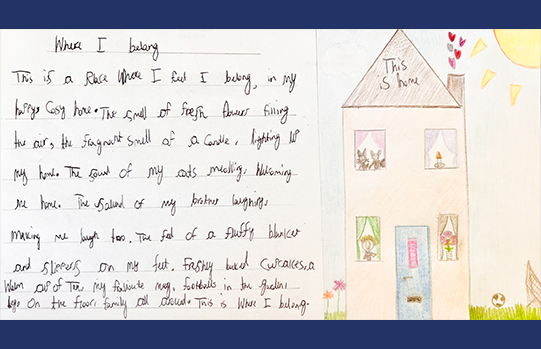 Where I belong
This is a Place Where I feel I belong, in my
happy cosy home. The smell of fresh flowers filling
the air, the fragrant smell of a candle, lighting up
my home. The sound of my cats meowing, Welcoming
me home. The sound of my brother laughing,
making me laugh too. The feel of a fluffy blanket
and slippers on my feet. Freshly baked cupcakes, a
Warm cup of Tea, my favourite mug, footballs in the garden,
lego on the floor, family all around. This is Where I belong.
This
is home